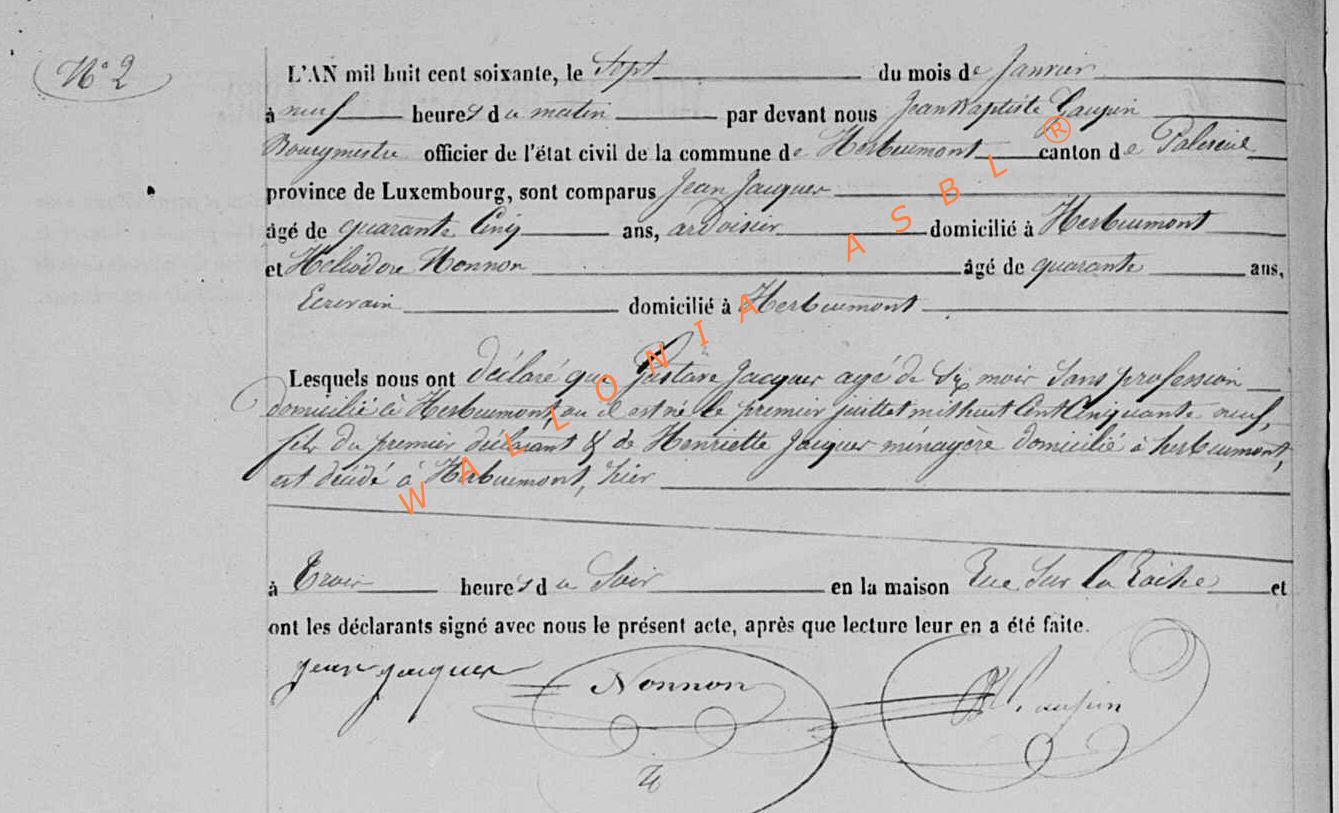 N° 2
L'AN mil huit cent soixante, le Sept du mois de Janvier
à neuf heures du matin par devant nous Jean Baptiste Laupin
Bourgmestre officier de l'état civil de la commune de Herbeumont canton de Paliseul
province de Luxembourg, sont comparus Jean Jacques
âgé de quarante Cinq ans, ardoisier domicilié à Herbeumont
et Héliodore Nonnon âgé de quarante ans,
Ecrivain domicilié à Herbeumont
Lesquels nous ont déclaré que Gustave Jacques agé de Six mois Sans profession
domicilié à Herbeumont, ou il est né le premier juillet mil huit Cent Cinquante neuf,
fils du premier déclarant & de Henriette Jacques ménagère domicilié à herbeumont,
est décédé à Herbeumont, hier
à Trois heures du Soir en la maison Rue Sur la Roche et
ont les déclarants signé avec nous le présent acte, après que lecture leur en a été faite.
Jean Jacques Nonnon Laupin
WALLONIA ASBL ®